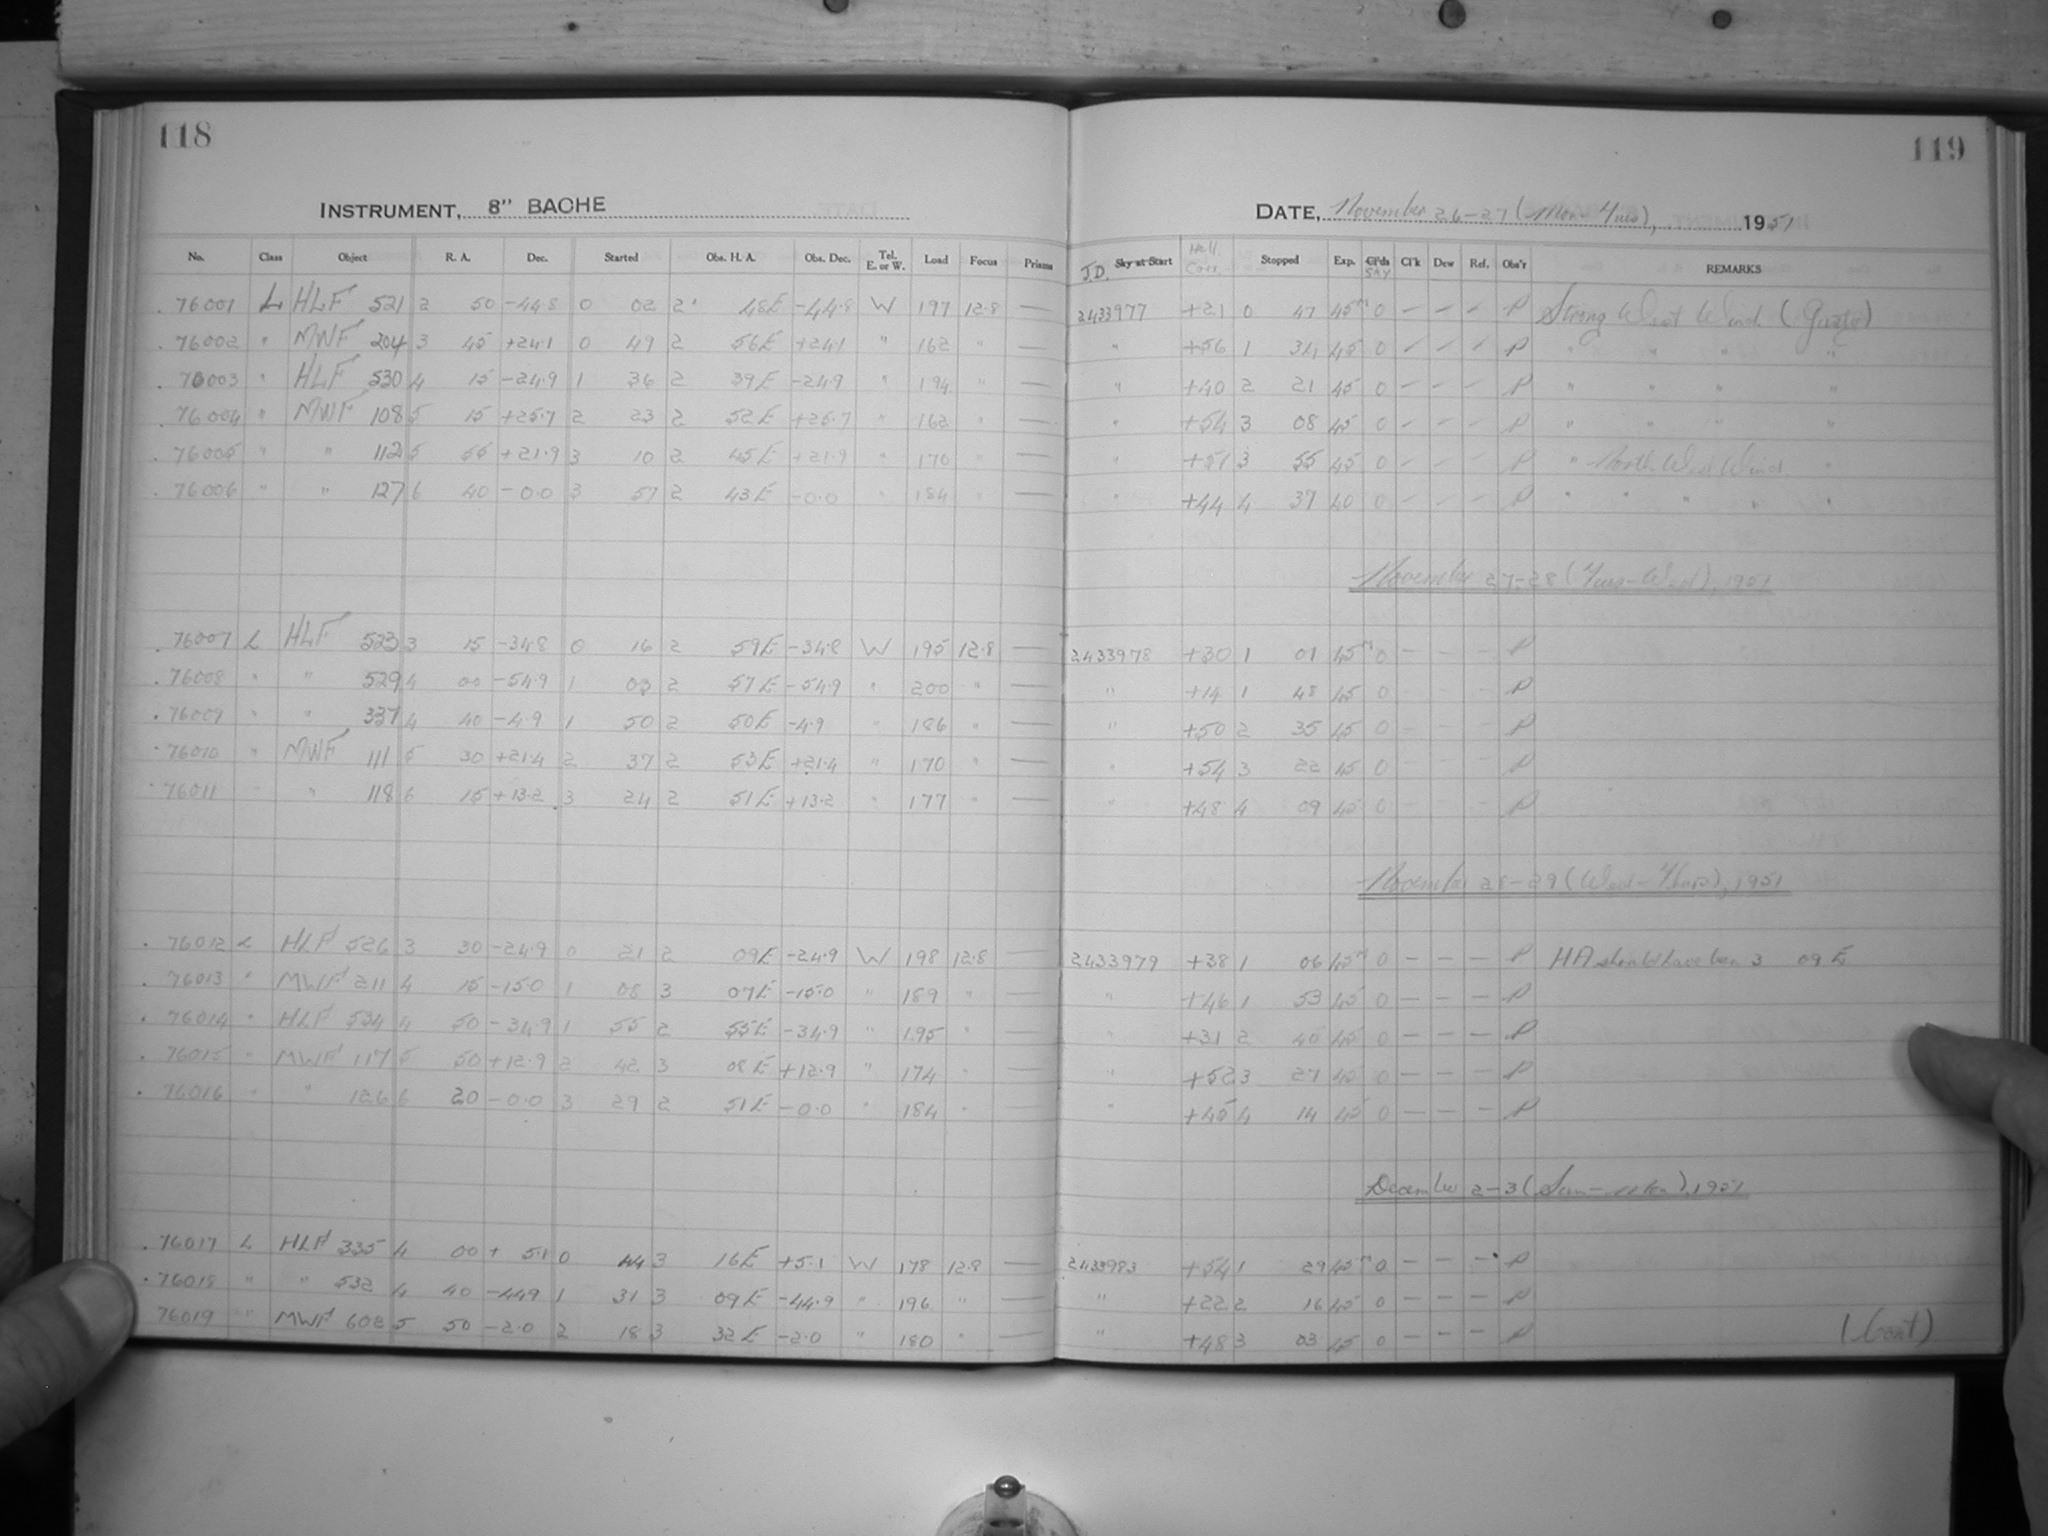 118
119
INSTRUMENT, 8" BACHE
DATE, November 26-27 (Mon-Tues), 1951
No. Class Object R. A. Dec. Started Obs. H. A. Obs. Dec. Tel. E. or W. Load Focus Prisms J.D. Sky at Start Hell. Corr. Stopped Exp. Cl'ds SKY Cl'k Dew Ref. Obs'r REMARKS
76001 L HLF 521 2 50 -44.8 0 02 2 48E -44.8 W 197 12.8 — 2433977 +21 0 47 45m 0 - - - P Strong West Wind (Gusts)
76002 " MWF 204 3 45 +24.1 0 49 2 56E +24.1 " 162 " — " +56 1 34 45 0 - - - P " " " "
76003 " HLF 530 4 15 -24.9 1 36 2 39E -24.9 " 194 " — " +40 2 21 45 0 - - - P " " " "
76004 " MWF 108 5 15 +25.7 2 23 2 52E +25.7 " 162 " — " +54 3 08 45 0 - - - P " " " "
76005 " " 112 5 55 +21.9 3 10 2 45E +21.9 " 170 " — " +51 3 55 45 0 - - - P " North West Wind "
76006 " " 127 6 40 -0.0 3 57 2 43E -0.0 " 184 " — " +44 4 37 40 0 - - - P " " " " "
November 27-28 (Tues-Wed), 1951
76007 L HLF 523 3 15 -34.8 0 16 2 59E -34.8 W 195 12.8 — 2433978 +30 1 01 45m 0 - - - P
76008 " " 529 4 00 -54.9 1 03 2 57E -54.9 " 200 " — " +14 1 48 45 0 - - - P
76009 " " 337 4 40 -4.9 1 50 2 50E -4.9 " 186 " — " +50 2 35 45 0 - - - P
76010 " MWF 111 5 30 +21.4 2 37 2 53E +21.4 " 170 " — " +54 3 22 45 0 - - - P
76011 " " 118 6 15 +13.2 3 24 2 51E +13.2 " 177 " — " +48 4 09 45 0 - - - P
November 28-29 (Wed-Thurs), 1951
76012 L HLF 526 3 30 -24.9 0 21 2 09E -24.9 W 198 12.8 — 2433979 +38 1 06 45m 0 - - - P HA should have been 3 09 E
76013 " MWF 211 4 15 -15.0 1 08 3 07E -15.0 " 189 " — " +46 1 53 45 0 - - - P
76014 " HLF 534 4 50 -34.9 1 55 2 55E -34.9 " 195 " — " +31 2 40 45 0 - - - P
76015 " MWF 117 5 50 +12.9 2 42 3 08E +12.9 " 174 " — " +52 3 27 45 0 - - - P
76016 " " 126 6 20 -0.0 3 29 2 51E -0.0 " 184 " — " +45 4 14 45 0 - - - P
December 2-3 (Sun-Mon), 1951
76017 L HLF 335 4 00 + 5.1 0 44 3 16E +5.1 W 178 12.8 — 2433983 +54 1 29 45m 0 - - - P
76018 " " 532 4 40 -44.9 1 31 3 09E -44.9 " 196 " — " +22 2 16 45 0 - - - P
76019 " MWF 608 5 50 -2.0 2 18 3 32E -2.0 " 180 " — " +48 3 03 45 0 - - - P
(Cont)